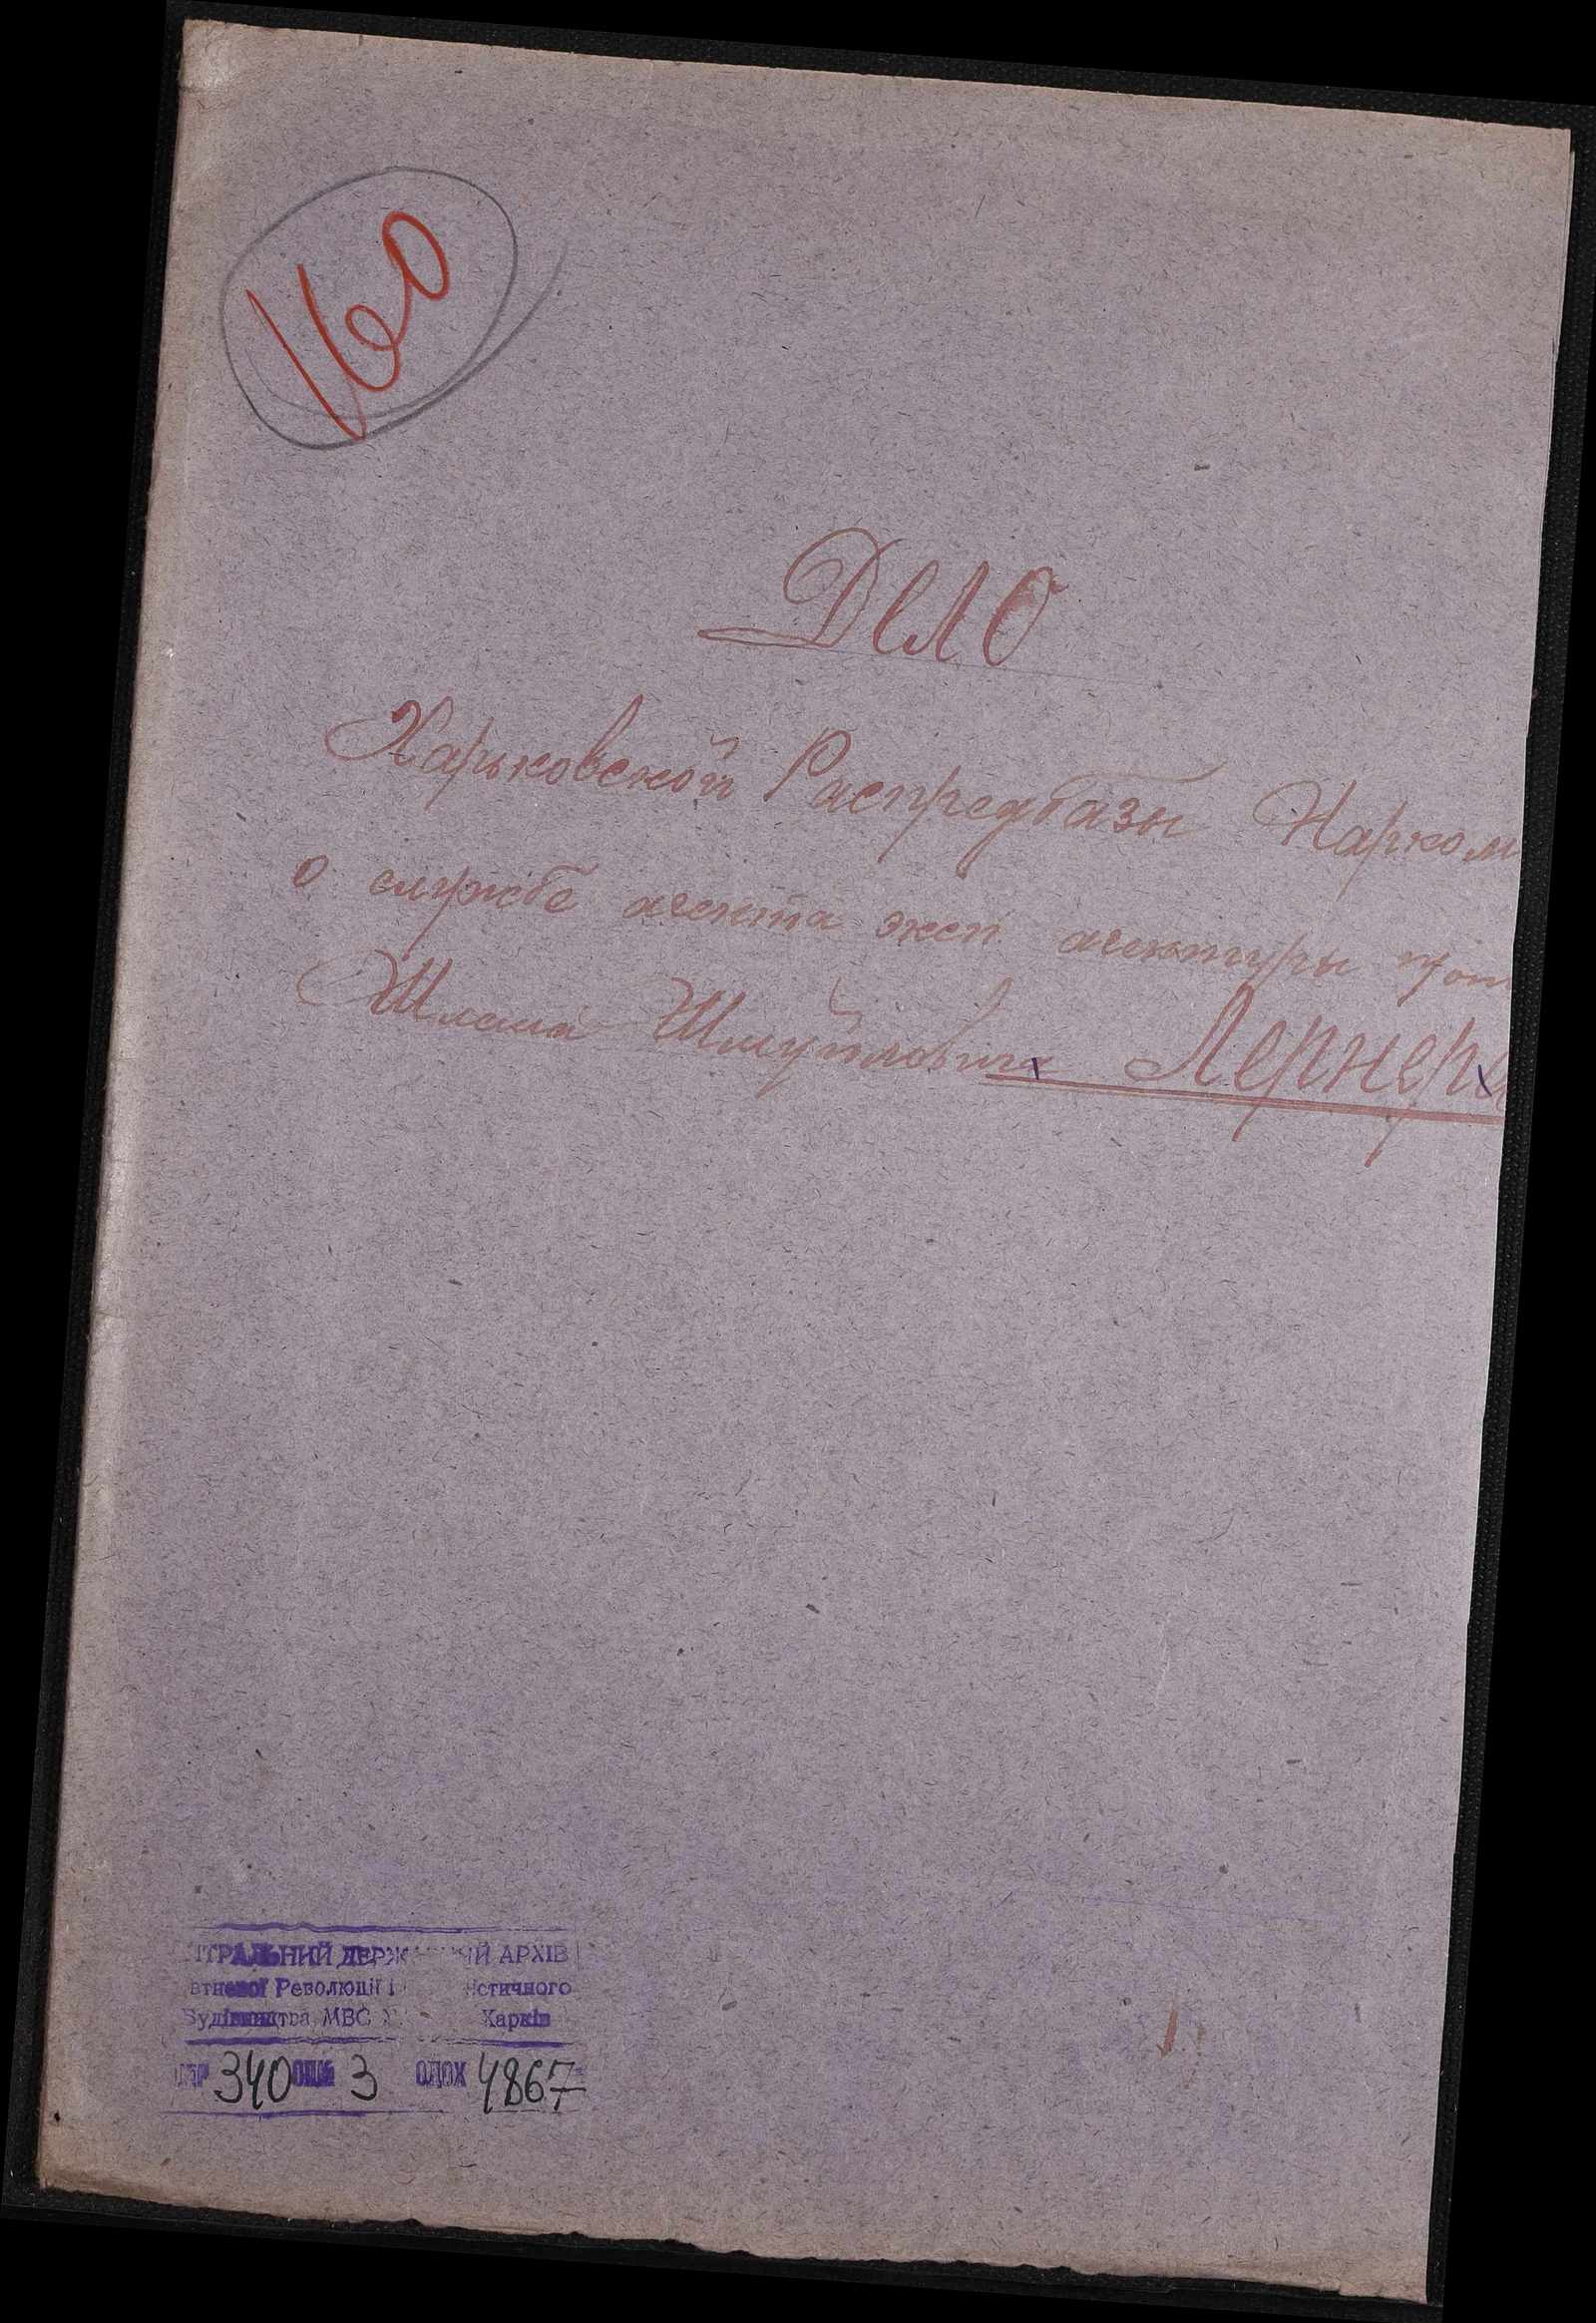 160
Дело
Харьковской Распредбазы Нарком
о службе агента эксп. агентуры
Шлема Шмуйловича Лернера
ТРАЛЬНИЙ ДЕРЖ ИЙ АРХІВ
втневої Революції і істичного
Будівництва МВС У Харків
340 опис 3 одох 4867